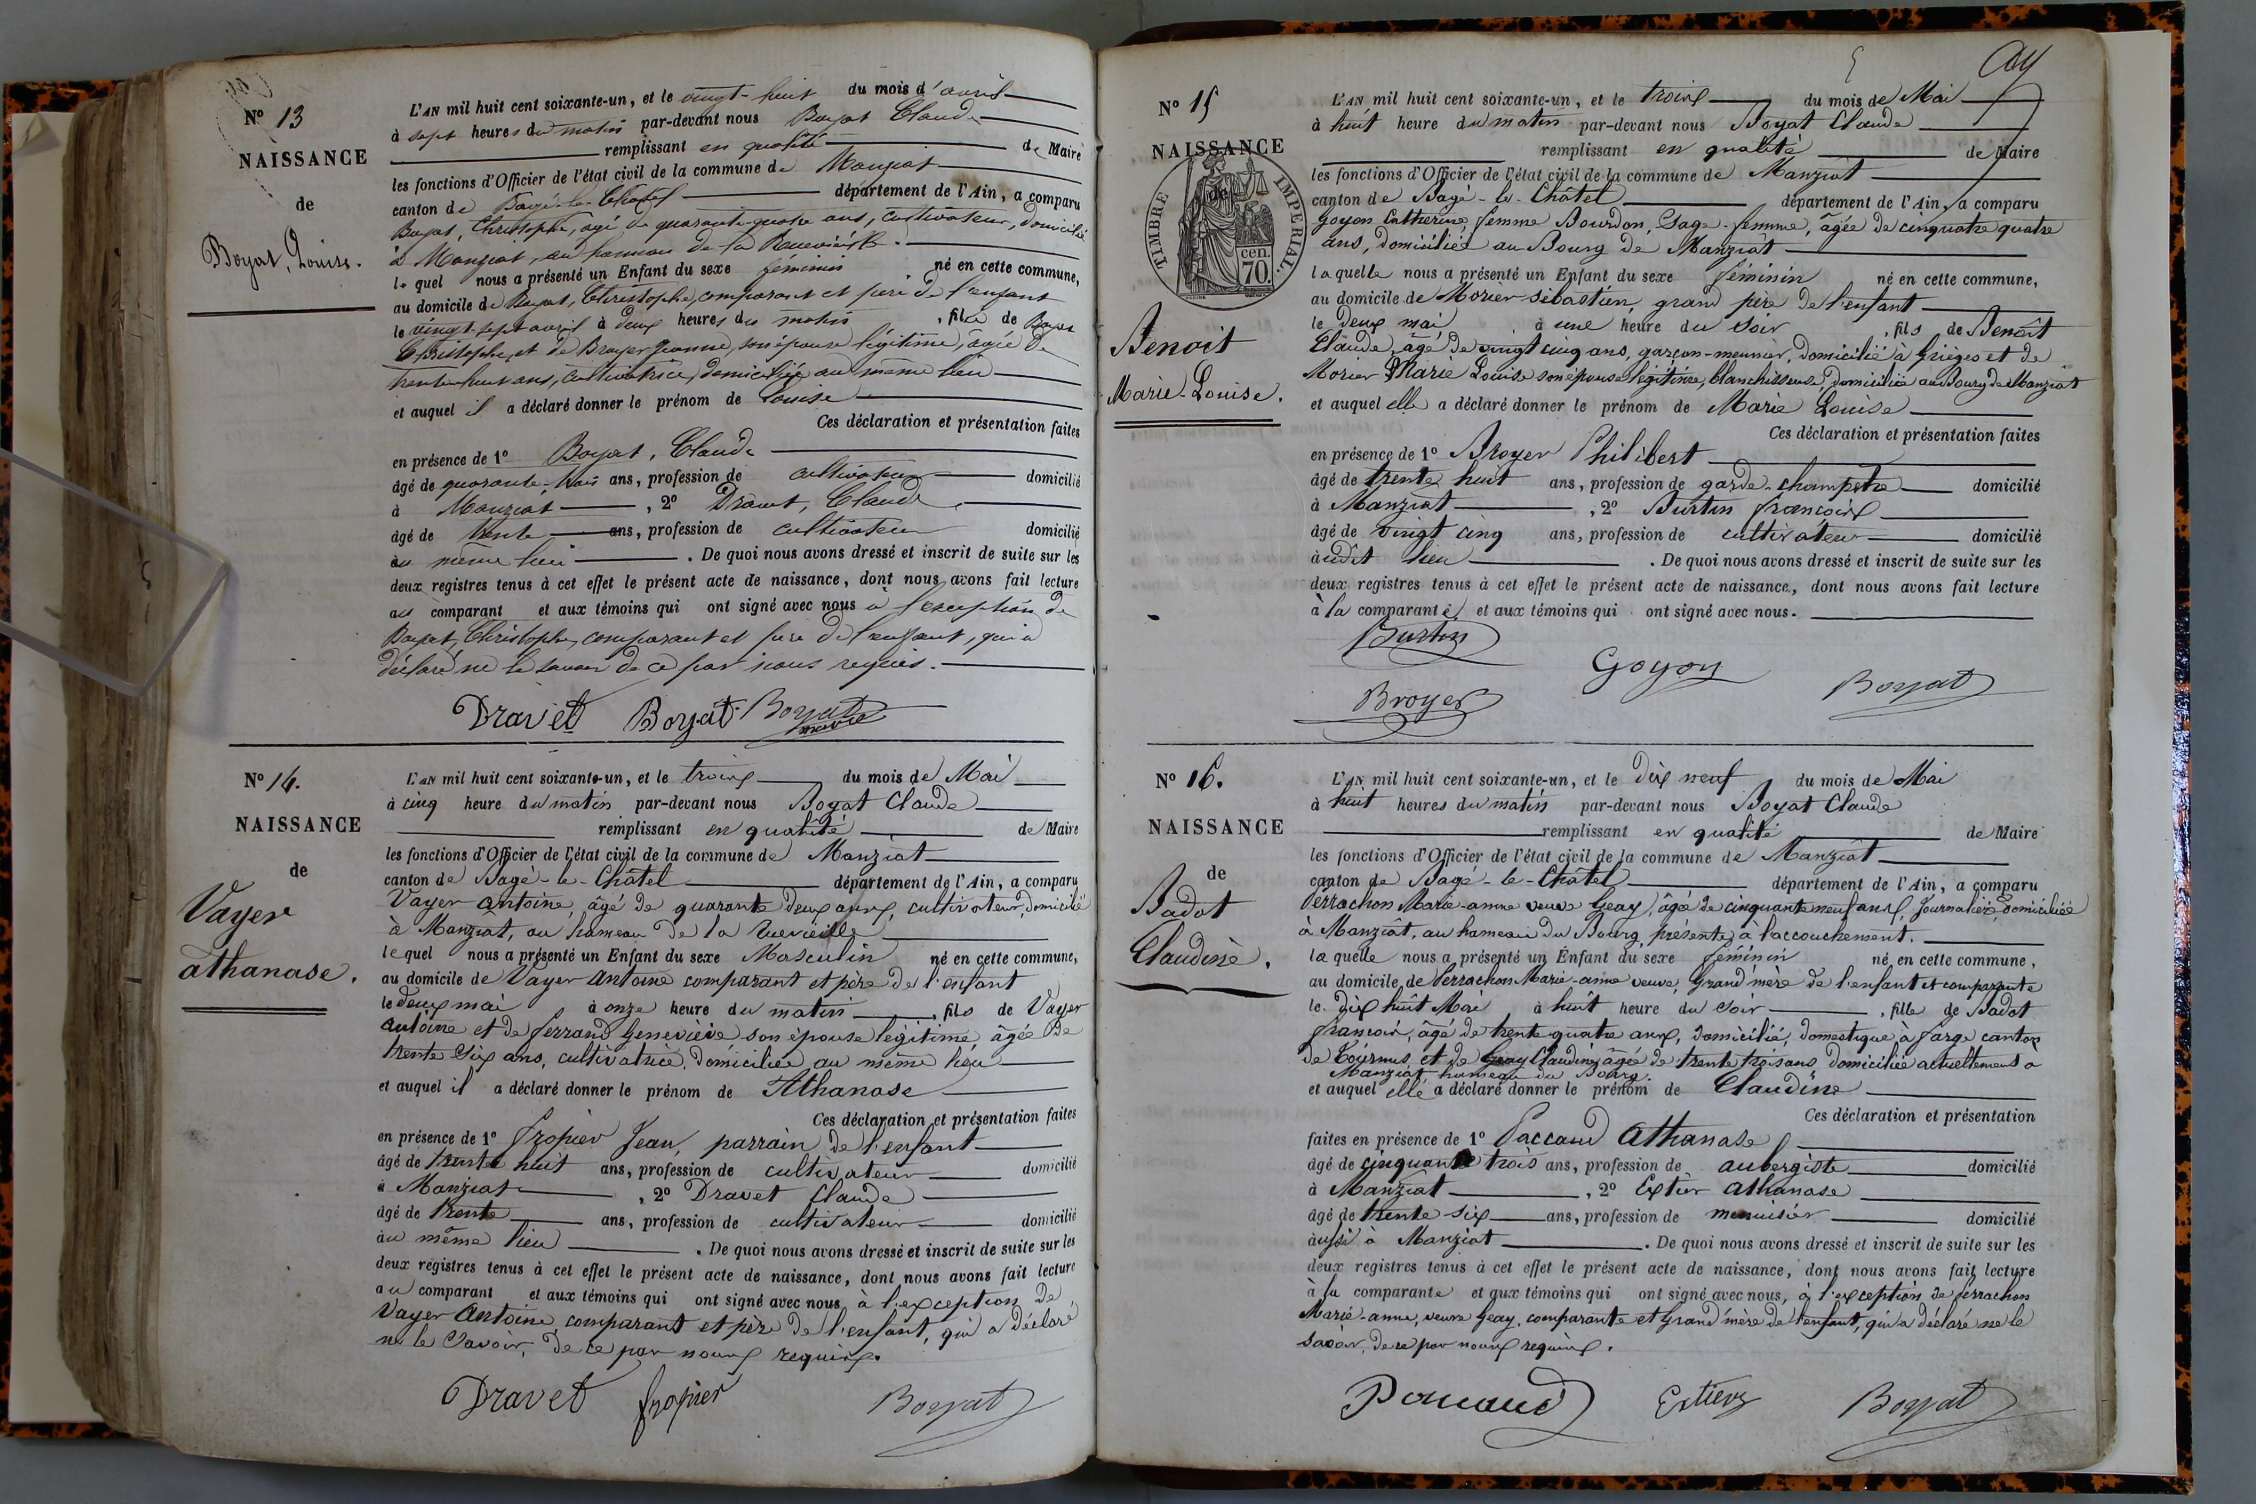 N° 13
NAISSANCE
de
Boyat, Louise.
L'AN mil huit cent soixante-un, et le vingt-huit du mois d'avril
à sept heures du matin par-devant nous Boyat Claude
remplissant en qualité de Maire
les fonctions d'Officier de l'état civil de la commune de Manziat
canton de Bagé-le-Chatel département de l'Ain, a comparu
Boyat, Christophe, agé de quarante-quatre ans, cultivateur, domicilié
à Manziat, au hameau de la
le quel nous a présenté un Enfant du sexe féminin, né en cette commune,
au domicile de Boyat, Christophe, comparant et père de l'enfant
le vingt-sept avril à deux heures du matin, fille de Boyat
Christophe, et de Broyer Jeanne, son épouse légitime, âgée de
trente-huit ans, cultivatrice, domiciliée au même lieu
et auquel il a déclaré donner le prénom de Louise
Ces déclaration et présentation faites
en présence de 1° Boyat, Claude
âgé de quarante-trois ans, profession de cultivateur domicilié
à Manziat, 2° Dravet, Claude
âgé de trente ans, profession de cultivateur domicilié
au même lieu. De quoi nous avons dressé et inscrit de suite sur les
deux registres tenus à cet effet le présent acte de naissance, dont nous avons fait lecture
au comparant et aux témoins qui ont signé avec nous à l'exception de
Boyat, Christophe, comparant et père de l'enfant, qui a
déclaré ne le savoir de ce par nous requis.
Dravet Boyat Boyat
maire
N° 14.
NAISSANCE
de
Vayer
athanase.
L'AN mil huit cent soixante-un, et le trois du mois de Mai
à cinq heure du matin par-devant nous Boyat Claude
remplissant en qualité de Maire
les fonctions d'Officier de l'état civil de la commune de Manziat
canton de Bagé-le-Châtel département de l'Ain, a comparu
Vayer antoine, âgé de quarante deux ans, cultivateur, domicilié
à Manziat, au hameau de la
le quel nous a présenté un Enfant du sexe Masculin né en cette commune,
au domicile de Vayer antoine comparant et père de l'enfant
le deux mai à onze heure du matin, fils de Vayer
antoine et de ferrand Geneviève son épouse légitime âgée de
trente six ans, cultivatrice, domiciliée au même lieu
et auquel il a déclaré donner le prénom de Athanase
Ces déclaration et présentation faites
en présence de 1° fropier Jean, parrain de l'enfant
âgé de trente huit ans, profession de cultivateur domicilié
à Manziat, 2° Dravet Claude
âgé de trente ans, profession de cultivateur domicilié
au même lieu. De quoi nous avons dressé et inscrit de suite sur les
deux registres tenus à cet effet le présent acte de naissance, dont nous avons fait lecture
au comparant et aux témoins qui ont signé avec nous à l'exception de
Vayer antoine, comparant et père de l'enfant, qui a déclaré
ne le savoir, de ce par nous requis.
Dravet fropier Boyat
N° 15
NAISSANCE
de
TIMBRE IMPERIAL.
cen.
70.
Benoit
Marie-Louise.
L'AN mil huit cent soixante-un, et le trois du mois de Mai
à huit heure du matin par-devant nous Boyat Claude
remplissant en qualité de Maire
les fonctions d'Officier de l'état civil de la commune de Manziat
canton de Bagé-le-Châtel département de l'Ain, a comparu
Goyon Catherine, femme Bourdon, Sage-femme, âgée de cinquante quatre
ans, domiciliée au Bourg de Manziat
la quelle nous a présenté un Enfant du sexe féminin né en cette commune,
au domicile de Morier sébastien, grand père de l'enfant
le deux mai à une heure du soir, fils de Benoit
Claude, âgé de vingt cinq ans, garçon-meunier, domicilié à Grièges et de
Morier Marie Louise son épouse légitime, blanchisseuse, domiciliée au Bourg de Manziat
et auquel elle a déclaré donner le prénom de Marie Louise
Ces déclaration et présentation faites
en présence de 1° Broyer Philibert
âgé de trente huit ans, profession de garde-champetre domicilié
à Manziat, 2° Burtin françois
âgé de vingt cinq ans, profession de cultivateur domicilié
audit lieu. De quoi nous avons dressé et inscrit de suite sur les
deux registres tenus à cet effet le présent acte de naissance, dont nous avons fait lecture
à la comparante, et aux témoins qui ont signé avec nous.
Burtin
Goyon
Broyer
Boyat
N° 16.
NAISSANCE
de
Badot
Claudine.
L'AN mil huit cent soixante-un, et le dix neuf du mois de Mai
à huit heures du matin par-devant nous Boyat Claude
remplissant en qualité de Maire
les fonctions d'Officier de l'état civil de la commune de Manziat
canton de Bagé-le-Châtel département de l'Ain, a comparu
Perrachon Marie-anne veuve Geay, âgée de cinquante neuf ans, Journalière, domiciliée
à Manziat, au hameau du Bourg, présente à l'accouchement.
la quelle nous a présenté un Enfant du sexe féminin né en cette commune,
au domicile de Perrachon Marie-anne veuve, Grand'mère de l'enfant et comparante
le dix huit Mai à huit heure du soir, fille de Badot
françois, âgé de trente quatre ans, domicilié, domestique à farge canton
de Tournus, et de Geay Claudine, âgée de trente trois ans, domiciliée actuellement à
Manziat hameau du Bourg.
et auquel elle a déclaré donner le prénom de Claudine
Ces déclaration et présentation
faites en présence de 1° Paccaud Athanase
âgé de cinquante trois ans, profession de aubergiste domicilié
à Manziat, 2° Extier Athanase
âgé de trente six ans, profession de menuisier domicilié
aussi à Manziat. De quoi nous avons dressé et inscrit de suite sur les
deux registres tenus à cet effet le présent acte de naissance, dont nous avons fait lecture
à la comparante et aux témoins qui ont signé avec nous, à l'exception de Perrachon
Marie-anne, veuve Geay, comparante et Grand'mère de l'enfant, qui a déclaré ne le
savoir, de ce par nous requise.
Boyat